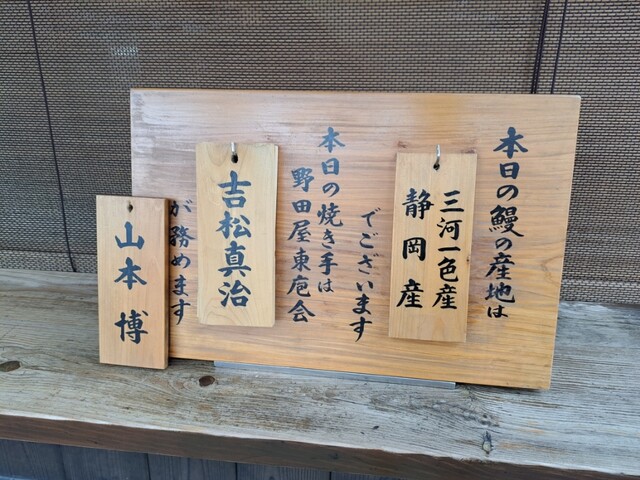 本日の鰻の産地は
三河一色産
静岡産
でございます
本日の焼き手は
野田屋東庖会
吉松真治
が務めます
山本博